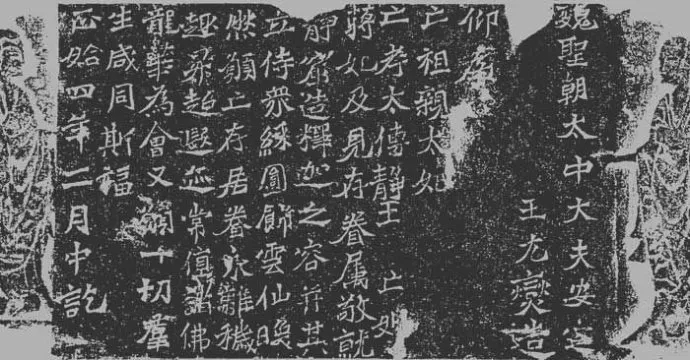 魏聖朝太中大夫安定
王元燮造
仰為
亡祖親太妃
亡考太傅靜王 亡妣
蔣妃及見存眷屬敬就
靜窟造釋迦之容并其
立侍眾綵圓飾雲仙暎
然願亡存居眷永離穢
趣昇超遐迹常值諸佛
龍華為會又願一切羣
生咸同斯福
正始四年二月中訖